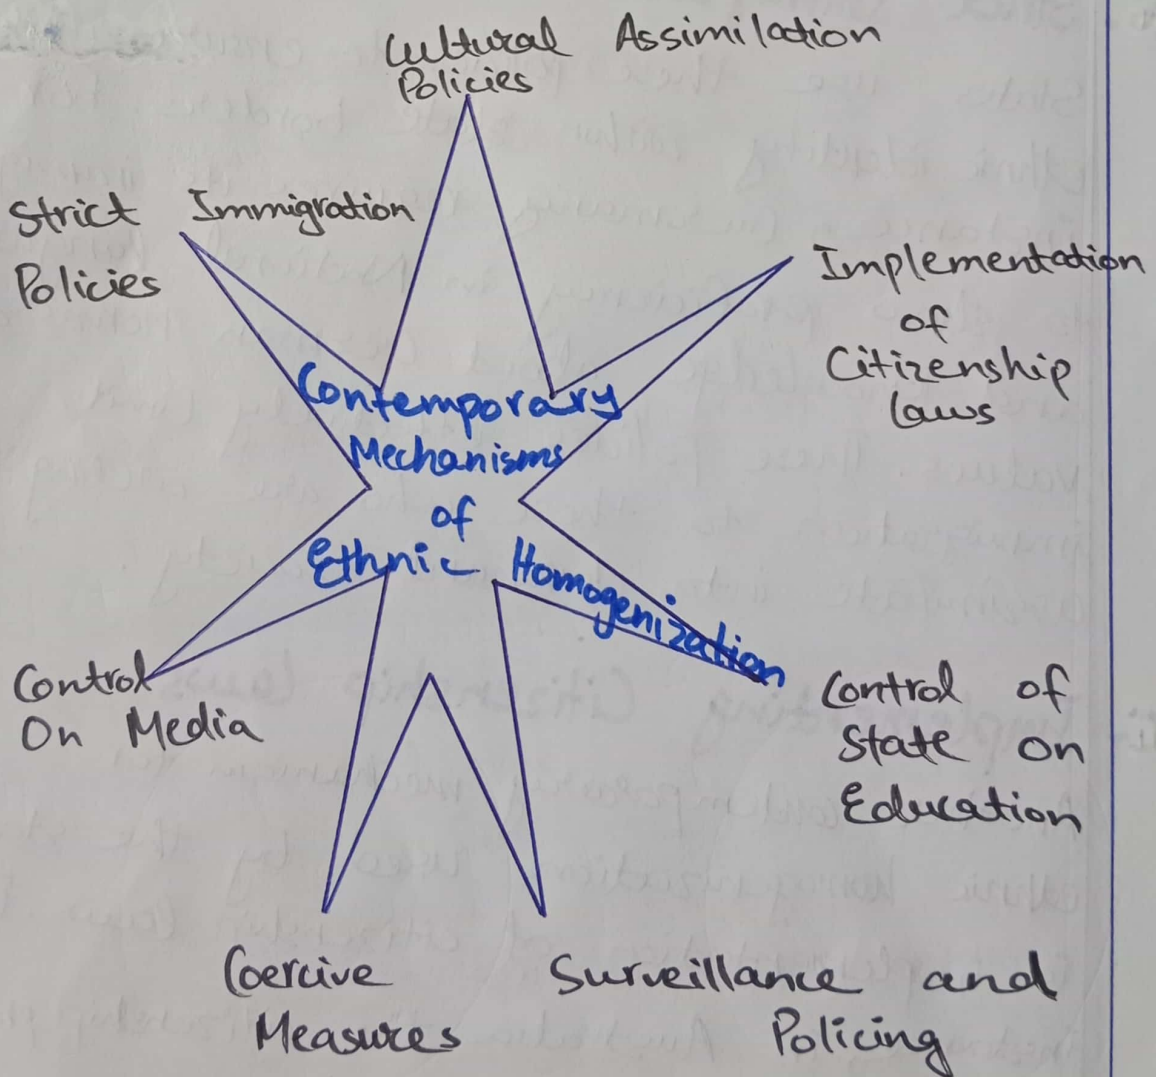 Cultural Assimilation
Policies
Strict Immigration
Policies
Implementation
of
Citizenship
laws
Contemporary
Mechanisms
of
Ethnic Homogenization
Control
On Media
Control of
State on
Education
Coercive
Measures
Surveillance and
Policing